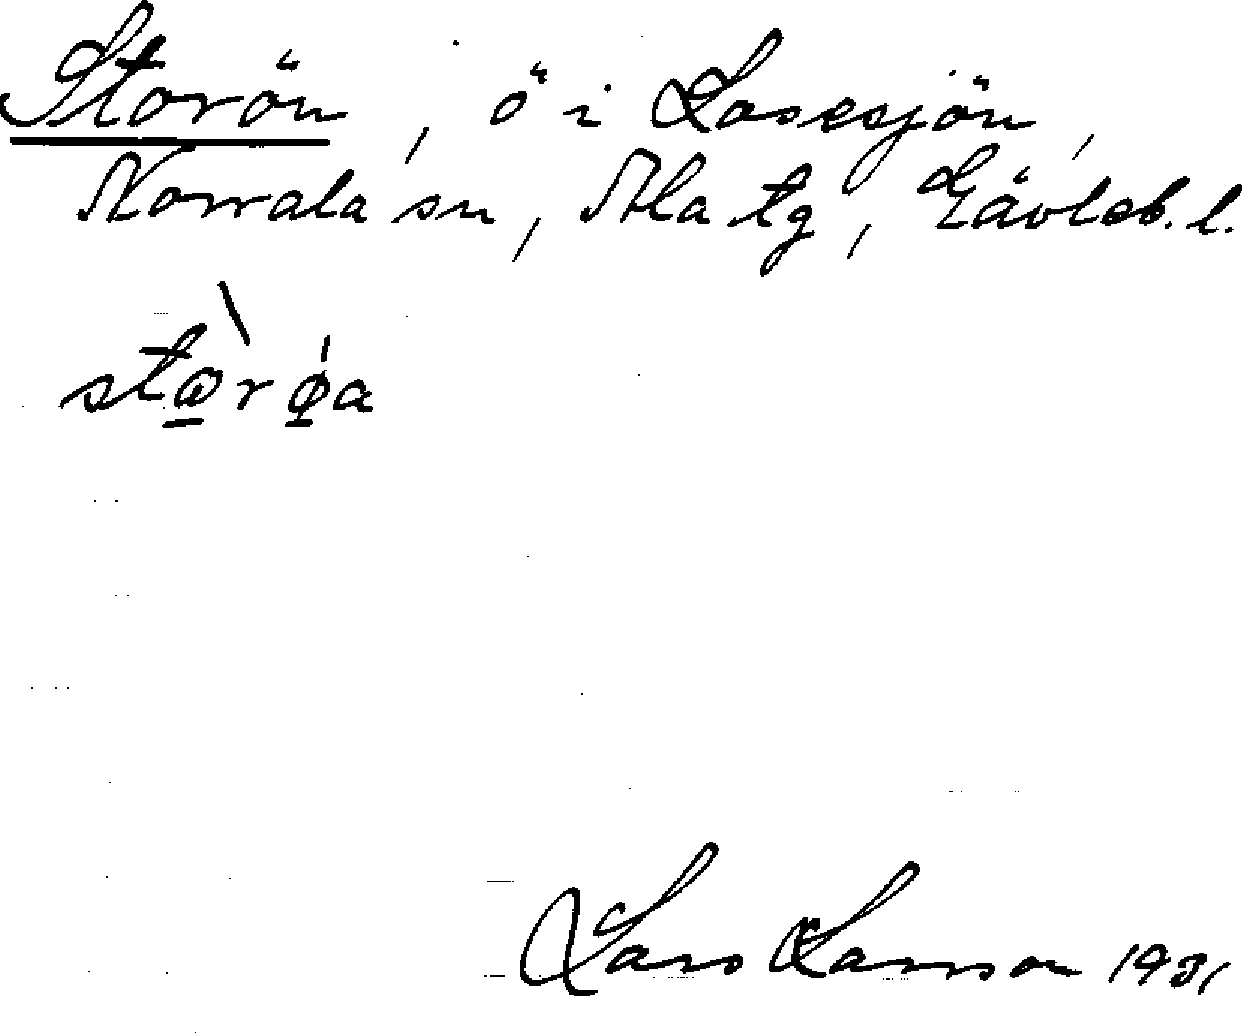 Storön, ö i Losesjön,
Norrala sn, Ala tg, Gävleb. l.
stωr øa
Lars Larsson 1931